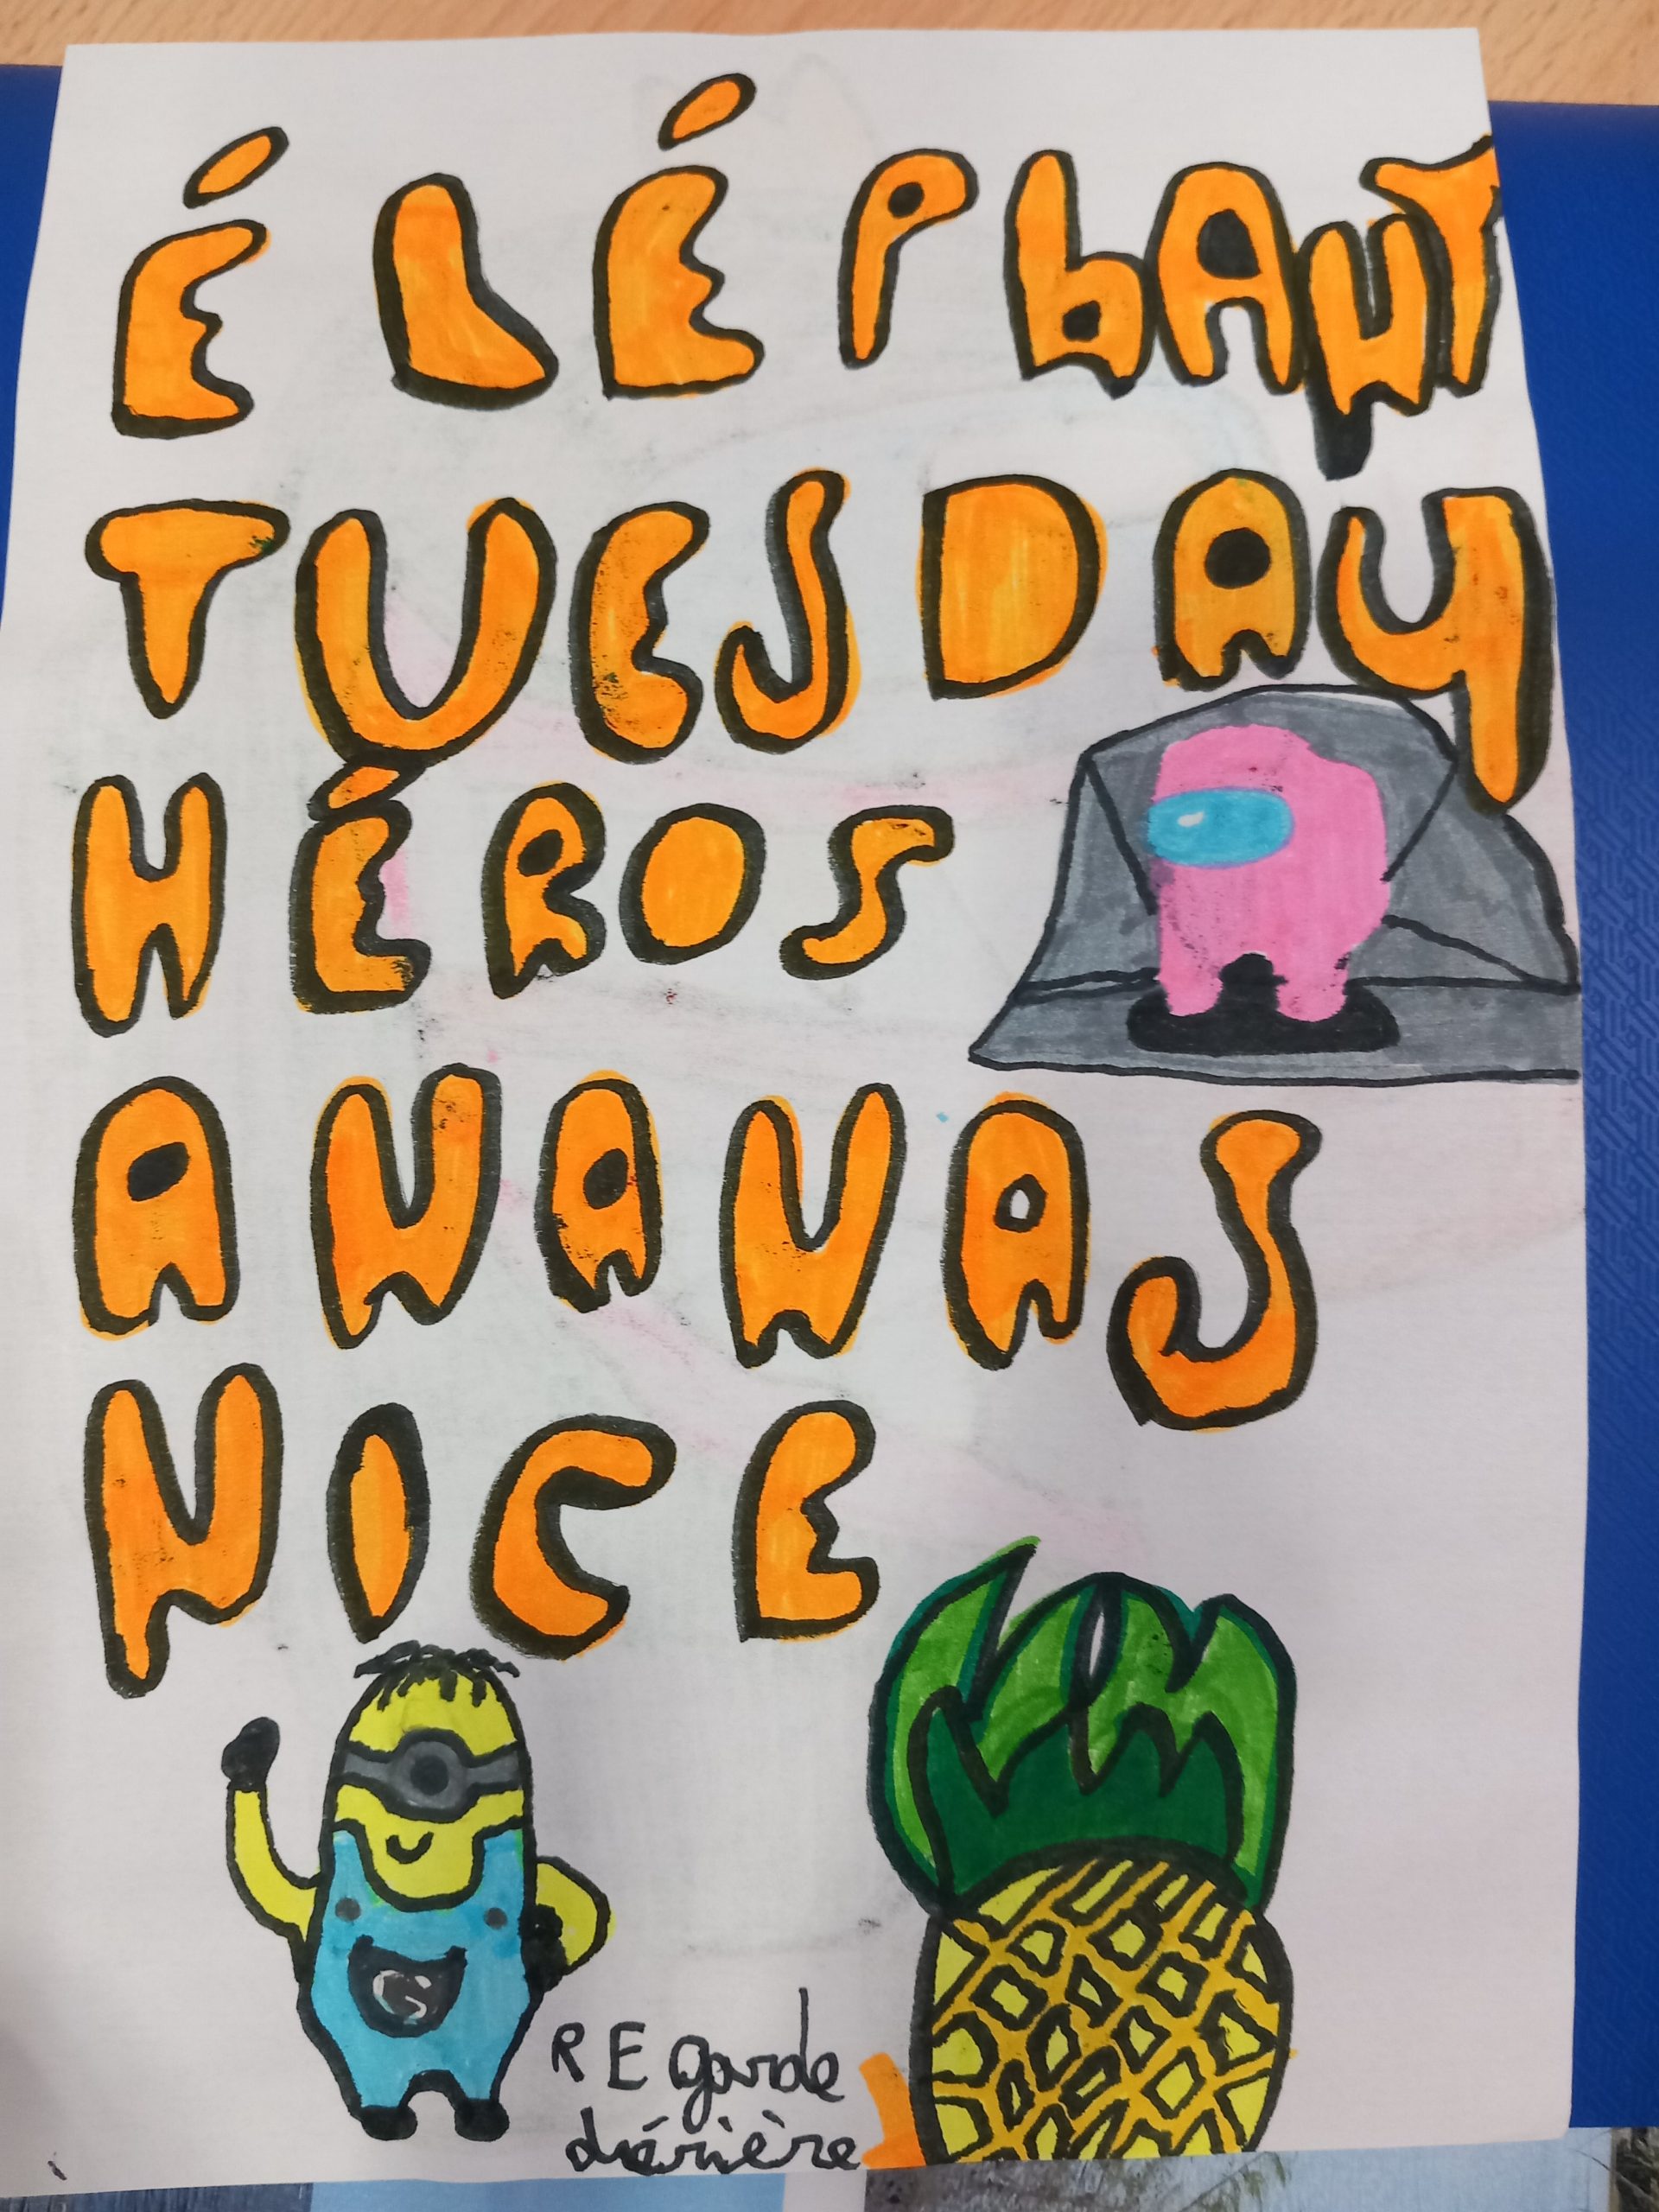 ÉLÉPhANT
TUESDAY
HÉROS
ANANAS
NICE
G
REgarde
dérière